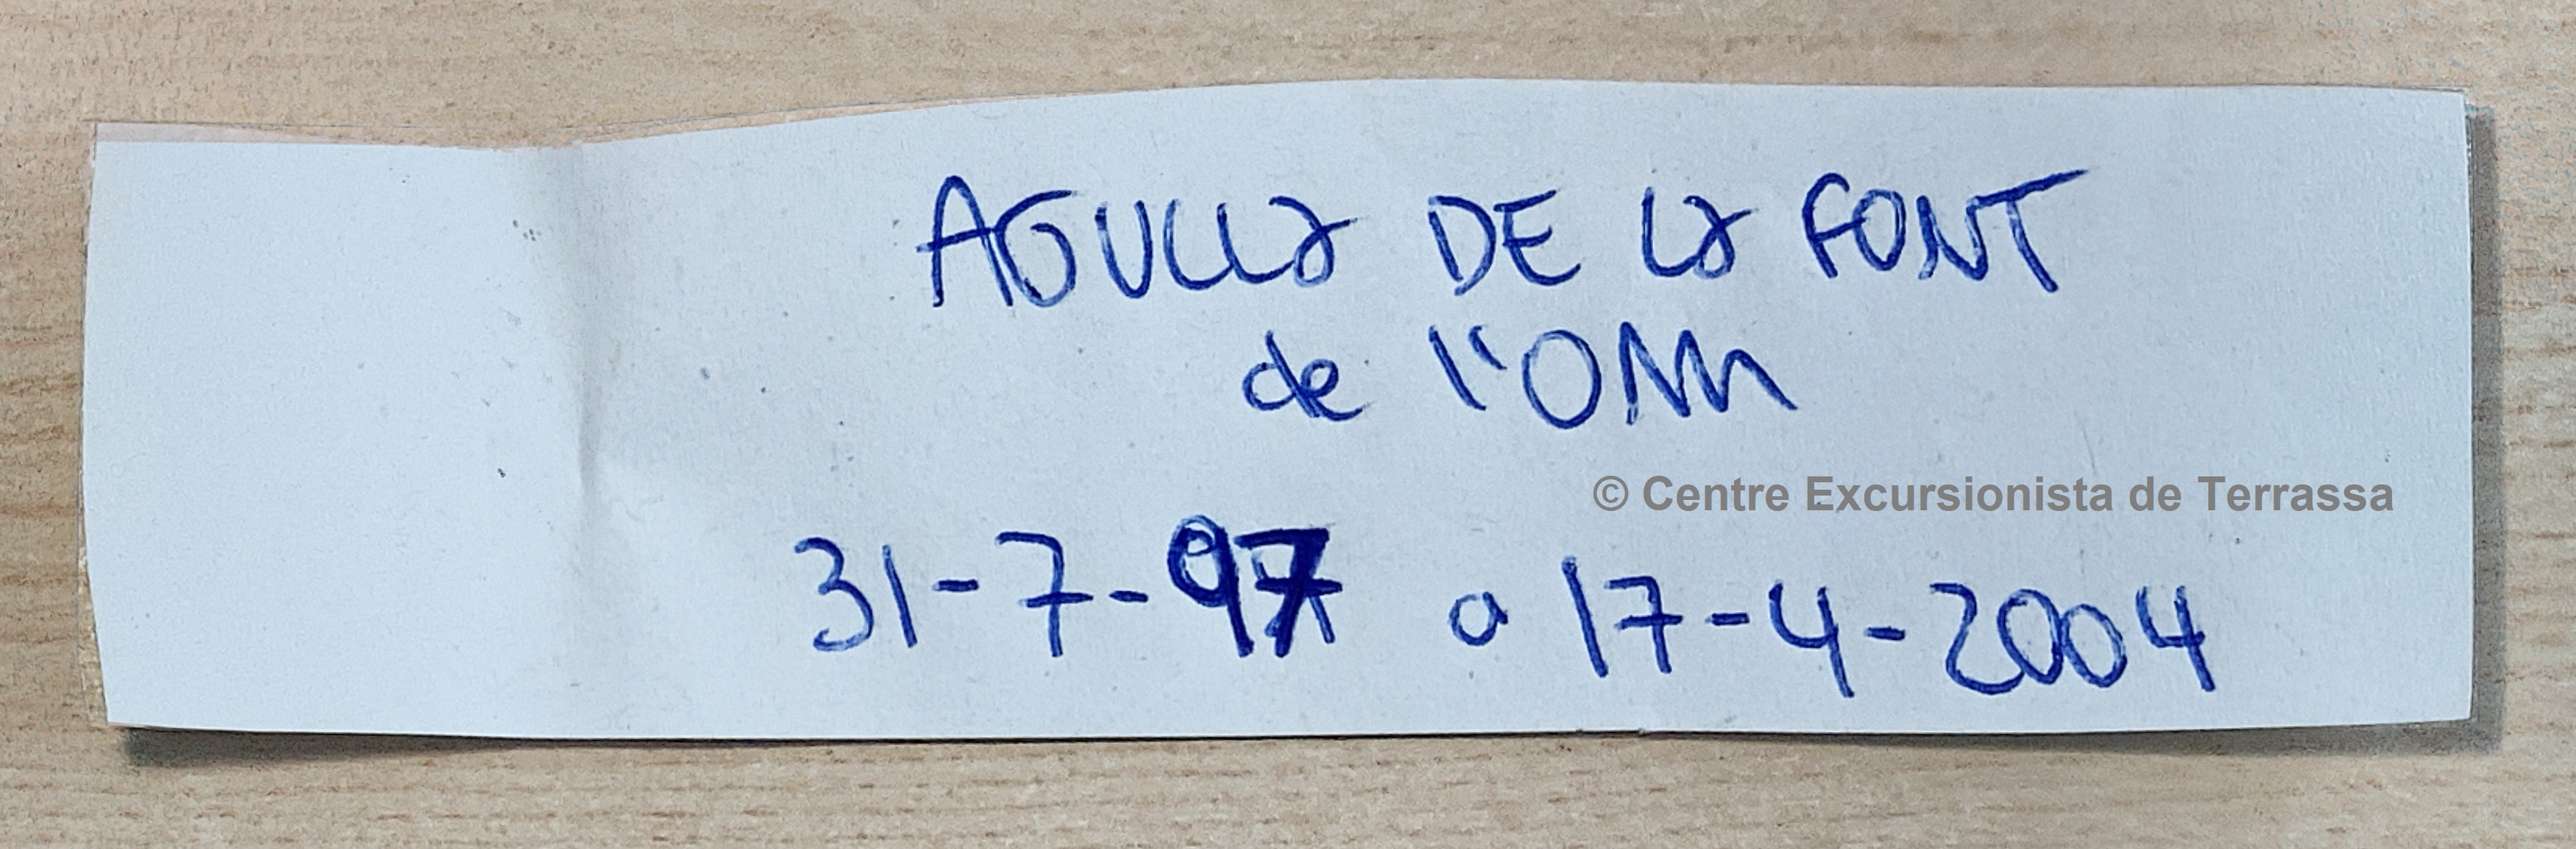 AGULLa DE La FONT
de l'OM
© Centre Excursionista de Terrassa
31-7-97 a 17-4-2004